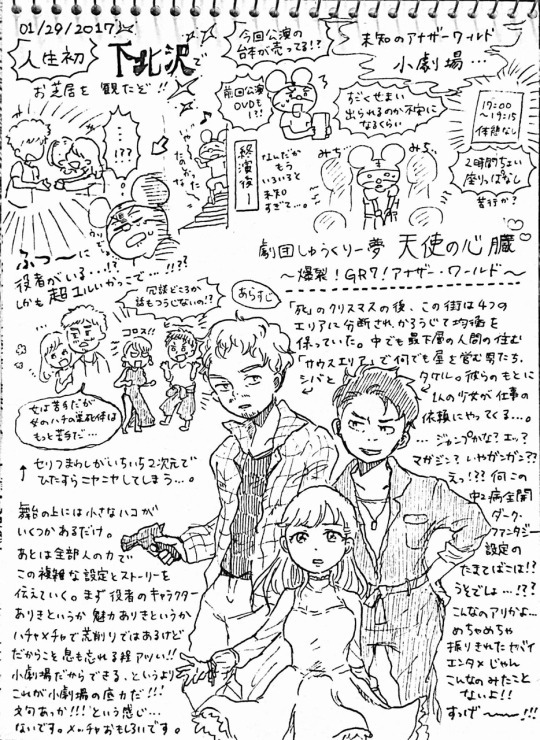 01/29/2017
人生初
下北沢で
お芝居を観たぞ!!
今回公演の
台本が売ってる!?
前回公演
DVDも
!?!
未知のアナザーワールド
小劇場…
すごくせまい
出られるのか不安に
なるくらい
17:00
〜19:15
休憩なし
2時間ちょい
座りっぱなし
苦行か?
みち
みち
…!??
終演後ー
なんだか
もう
いろいろと
未知
すぎて…。
ふつ〜に
役者がいる…!?
しかも超ユルいかっこで…!!??
劇団しゅうくりー夢 天使の心臓
〜爆裂!GR7!アナザー・ワールド〜
冗談どころか
話もつうじないの!?
コロス!!
女は苦手だが
あらすじ
「死」のクリスマスの後、この街は4つの
エリアに分断され、かろうじて均衡を
保っていた。中でも最下層の人間の住む
「サウスエリア」で何でも屋を営む男たち、
シバと
タケル。彼らのもとに
1人の少女が仕事の
依頼にやってくる…。
…ジャンプかな?エッ?
マガジン?いやガンガン??
えっ!??何この
中2病全開
ダーク・
ファンタジー
設定の
たまてばこは!?
うそでしょ…!??
こんなのアリかよ…
めちゃめちゃ
振りきれたヤバイ
エンタメじゃん
こんなのみたこと
ないよ!!
すっげー〜〜!!!
↑セリフまわしがいちいち2次元で
ひたすらニヤニヤしてしまう…。
舞台の上には小さなハコが
いくつかあるだけ。
あとは全部人の力で
この複雑な設定とストーリーを
伝えていく。まず役者のキャラクター
ありきというか魅力ありきというか
ハチャメチャで荒削りではあるけど
だからこそ息も忘れる程アツい!!
小劇場だからできる、というより
これが小劇場の底力だ!!!
文句あっか!!!という感じ…
ないです。メッチャおもしろいです。